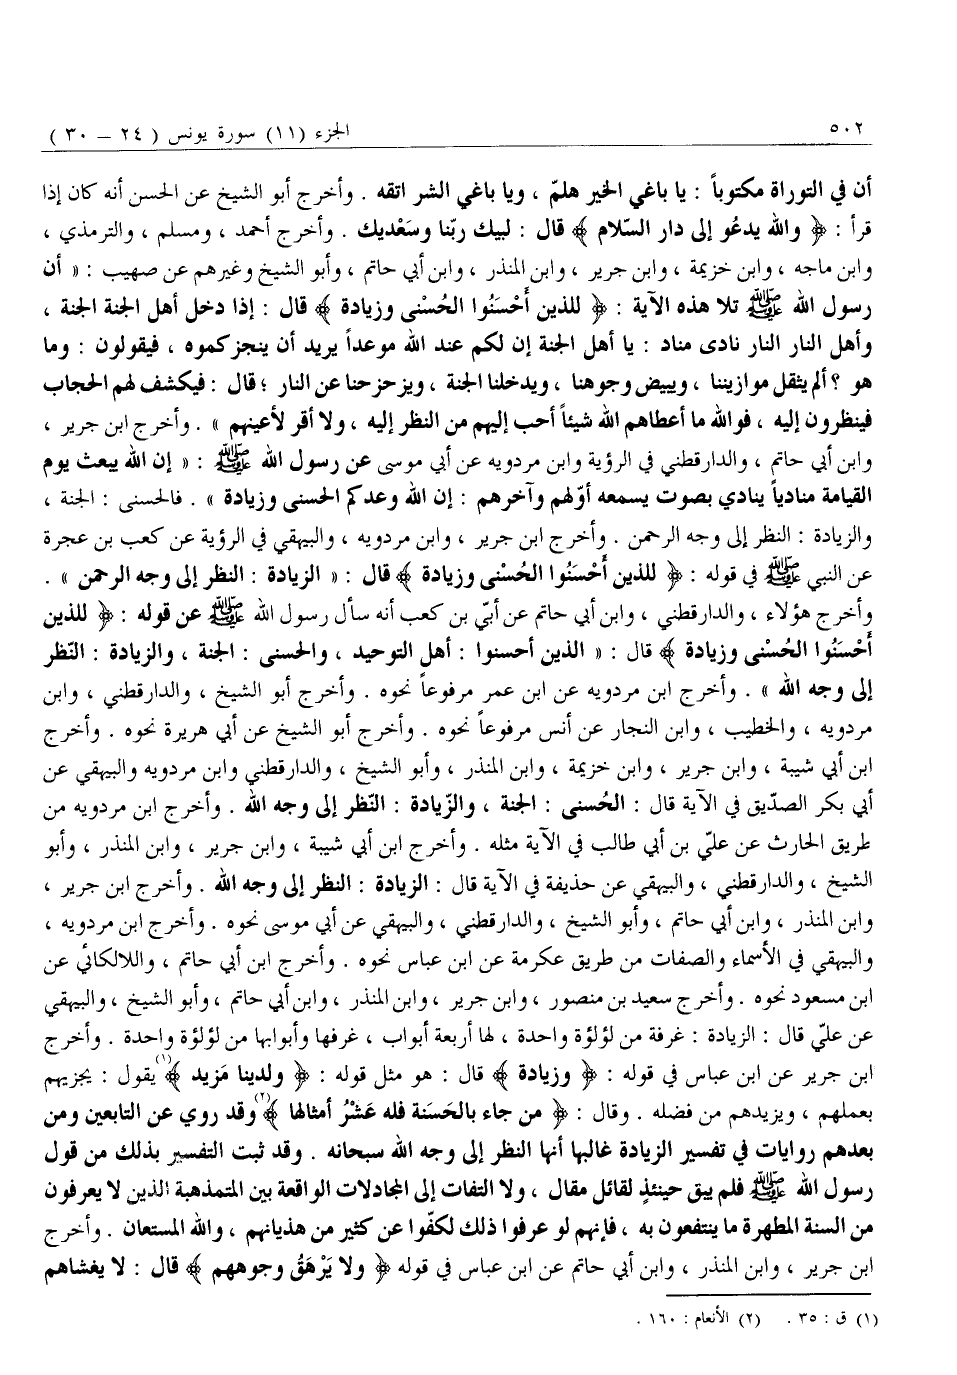 ٥٠٢
الجزء (١١) سورة يونس ( ٢٤ – ٣٠ )
أن في التوراة مكتوباً : يا باغي الخير هلمّ ، ويا باغي الشر اتقه . وأخرج أبو الشيخ عن الحسن أنه كان إذا
قرأ : ﴿ والله يدعُو إلى دار السّلام ﴾ قال : لبيك ربّنا وسَعْديك . وأخرج أحمد ، ومسلم ، والترمذي ،
وابن ماجه ، وابن خزيمة ، وابن جرير ، وابن المنذر ، وابن أبي حاتم ، وأبو الشيخ وغيرهم عن صهيب : « أن
رسول الله ﷺ تلا هذه الآية : ﴿ للذين أَحْسَنُوا الحُسْنى وزيادة ﴾ قال : إذا دخل أهل الجنة الجنة ،
وأهل النار النار نادى مناد : يا أهل الجنة إن لكم عند الله موعداً يريد أن ينجزكموه ، فيقولون : وما
هو ؟ ألم يثقل موازيننا ، ويبيض وجوهنا ، ويدخلنا الجنة ، ويزحزحنا عن النار ؛ قال : فيكشف لهم الحجاب
فينظرون إليه ، فوالله ما أعطاهم الله شيئاً أحب إليهم من النظر إليه ، ولا أقر لأعينهم » . وأخرج ابن جرير ،
وابن أبي حاتم ، والدارقطني في الرؤية وابن مردويه عن أبي موسى عن رسول الله ﷺ : « إن الله يبعث يوم
القيامة منادياً ينادي بصوت يسمعه أوّلهم وآخرهم : إن الله وعدكم الحسنى وزيادة » . فالحسنى : الجنة ،
والزيادة : النظر إلى وجه الرحمن . وأخرج ابن جرير ، وابن مردويه ، والبيهقي في الرؤية عن كعب بن عجرة
عن النبي ﷺ في قوله : ﴿ للذين أَحْسَنُوا الحُسْنى وزيادة ﴾ قال : « الزيادة : النظر إلى وجه الرحمن » .
وأخرج هؤلاء ، والدارقطني ، وابن أبي حاتم عن أبيّ بن كعب أنه سأل رسول الله ﷺ عن قوله : ﴿ للذين
أَحْسَنُوا الحُسْنى وزيادة ﴾ قال : « الذين أحسنوا : أهل التوحيد ، والحسنى : الجنة ، والزيادة : النّظر
إلى وجه الله » . وأخرج ابن مردويه عن ابن عمر مرفوعاً نحوه . وأخرج أبو الشيخ ، والدارقطني ، وابن
مردويه ، والخطيب ، وابن النجار عن أنس مرفوعاً نحوه . وأخرج أبو الشيخ عن أبي هريرة نحوه . وأخرج
ابن أبي شيبة ، وابن جرير ، وابن خزيمة ، وابن المنذر ، وأبو الشيخ ، والدارقطني وابن مردويه والبيهقي عن
أبي بكر الصدّيق في الآية قال : الحُسنى : الجنة ، والزّيادة : النّظر إلى وجه الله . وأخرج ابن مردويه من
طريق الحارث عن عليّ بن أبي طالب في الآية مثله . وأخرج ابن أبي شيبة ، وابن جرير ، وابن المنذر ، وأبو
الشيخ ، والدارقطني ، والبيهقي عن حذيفة في الآية قال : الزيادة : النظر إلى وجه الله . وأخرج ابن جرير ،
وابن المنذر ، وابن أبي حاتم ، وأبو الشيخ ، والدارقطني ، والبيهقي عن أبي موسى نحوه . وأخرج ابن مردويه ،
والبيهقي في الأسماء والصفات من طريق عكرمة عن ابن عباس نحوه . وأخرج ابن أبي حاتم ، واللالكائي عن
ابن مسعود نحوه . وأخرج سعيد بن منصور ، وابن جرير ، وابن المنذر ، وابن أبي حاتم ، وأبو الشيخ ، والبيهقي
عن عليّ قال : الزيادة : غرفة من لؤلؤة واحدة ، لها أربعة أبواب ، غرفها وأبوابها من لؤلؤة واحدة . وأخرج
ابن جرير عن ابن عباس في قوله : ﴿ وزيادة ﴾ قال : هو مثل قوله : ﴿ ولدينا مَزيد ﴾(١) يقول : يجزيهم
بعملهم ، ويزيدهم من فضله . وقال : ﴿ من جاء بالحَسَنة فله عَشْرُ أمثالها ﴾(٢) وقد روي عن التابعين ومن
بعدهم روايات في تفسير الزيادة غالبها أنها النظر إلى وجه الله سبحانه . وقد ثبت التفسير بذلك من قول
رسول الله ﷺ فلم يبق حينئذٍ لقائل مقال ، ولا التفات إلى المجادلات الواقعة بين المتمذهبة الذين لا يعرفون
من السنة المطهرة ما ينتفعون به ، فإنهم لو عرفوا ذلك لكفّوا عن كثير من هذيانهم ، والله المستعان . وأخرج
ابن جرير ، وابن المنذر ، وابن أبي حاتم عن ابن عباس في قوله ﴿ ولا يَرْهَقُ وجوههم ﴾ قال : لا يغشاهم
(١) ق : ٣٥ . (٢) الأنعام : ١٦٠ .